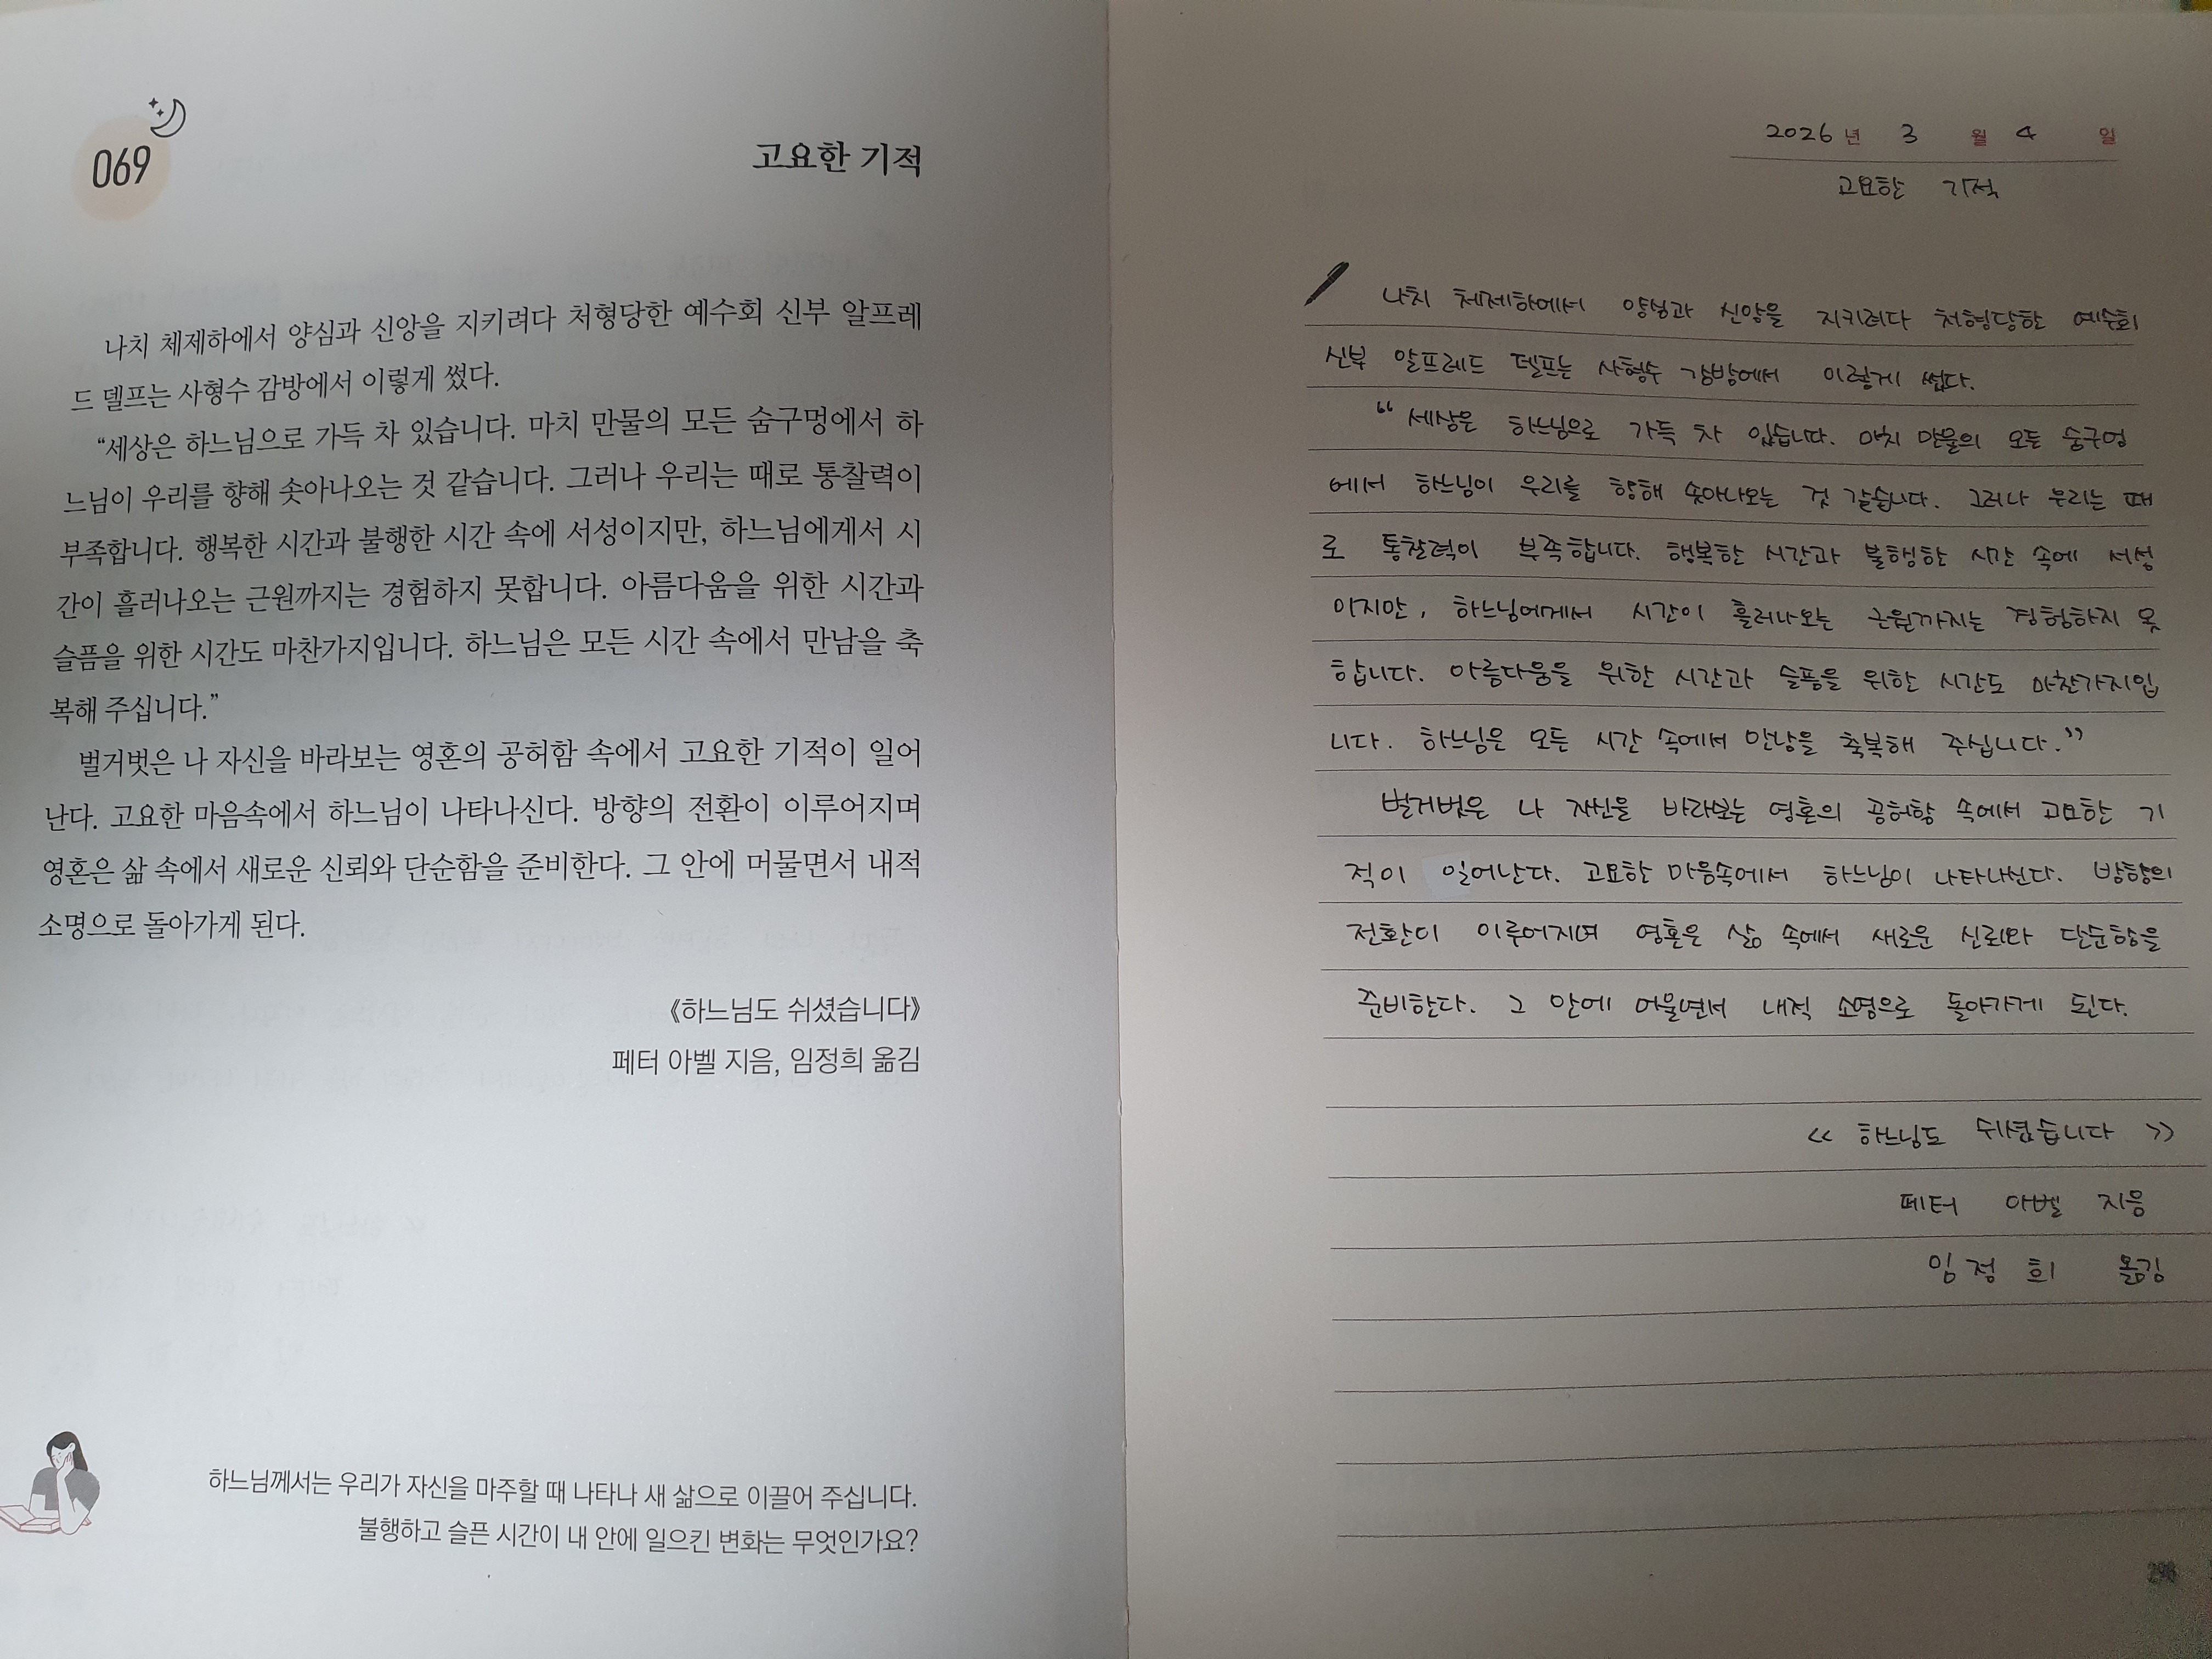 069
고요한 기적
나치 체제하에서 양심과 신앙을 지키려다 처형당한 예수회 신부 알프레
드 델프는 사형수 감방에서 이렇게 썼다.
“세상은 하느님으로 가득 차 있습니다. 마치 만물의 모든 숨구멍에서 하
느님이 우리를 향해 솟아나오는 것 같습니다. 그러나 우리는 때로 통찰력이
부족합니다. 행복한 시간과 불행한 시간 속에 서성이지만, 하느님에게서 시
간이 흘러나오는 근원까지는 경험하지 못합니다. 아름다움을 위한 시간과
슬픔을 위한 시간도 마찬가지입니다. 하느님은 모든 시간 속에서 만남을 축
복해 주십니다.”
벌거벗은 나 자신을 바라보는 영혼의 공허함 속에서 고요한 기적이 일어
난다. 고요한 마음속에서 하느님이 나타나신다. 방향의 전환이 이루어지며
영혼은 삶 속에서 새로운 신뢰와 단순함을 준비한다. 그 안에 머물면서 내적
소명으로 돌아가게 된다.
《하느님도 쉬셨습니다》
페터 아벨 지음, 임정희 옮김
하느님께서는 우리가 자신을 마주할 때 나타나 새 삶으로 이끌어 주십니다.
불행하고 슬픈 시간이 내 안에 일으킨 변화는 무엇인가요?
2026 년 3 월 4 일
고요한 기적
나치 체제하에서 양심과 신앙을 지키려다 처형당한 예수회
신부 알프레드 델프는 사형수 감방에서 이렇게 썼다.
“세상은 하느님으로 가득 차 있습니다. 마치 만물의 모든 숨구멍
에서 하느님이 우리를 향해 솟아나오는 것 같습니다. 그러나 우리는 때
로 통찰력이 부족합니다. 행복한 시간과 불행한 시간 속에 서성
이지만, 하느님에게서 시간이 흘러나오는 근원까지는 경험하지 못
합니다. 아름다움을 위한 시간과 슬픔을 위한 시간도 마찬가지입
니다. 하느님은 모든 시간 속에서 만남을 축복해 주십니다.”
벌거벗은 나 자신을 바라보는 영혼의 공허함 속에서 고요한 기
적이 일어난다. 고요한 마음속에서 하느님이 나타나신다. 방향의
전환이 이루어지며 영혼은 삶 속에서 새로운 신뢰와 단순함을
준비한다. 그 안에 머물면서 내적 소명으로 돌아가게 된다.
<< 하느님도 쉬셨습니다 >>
페터 아벨 지음
임정희 옮김